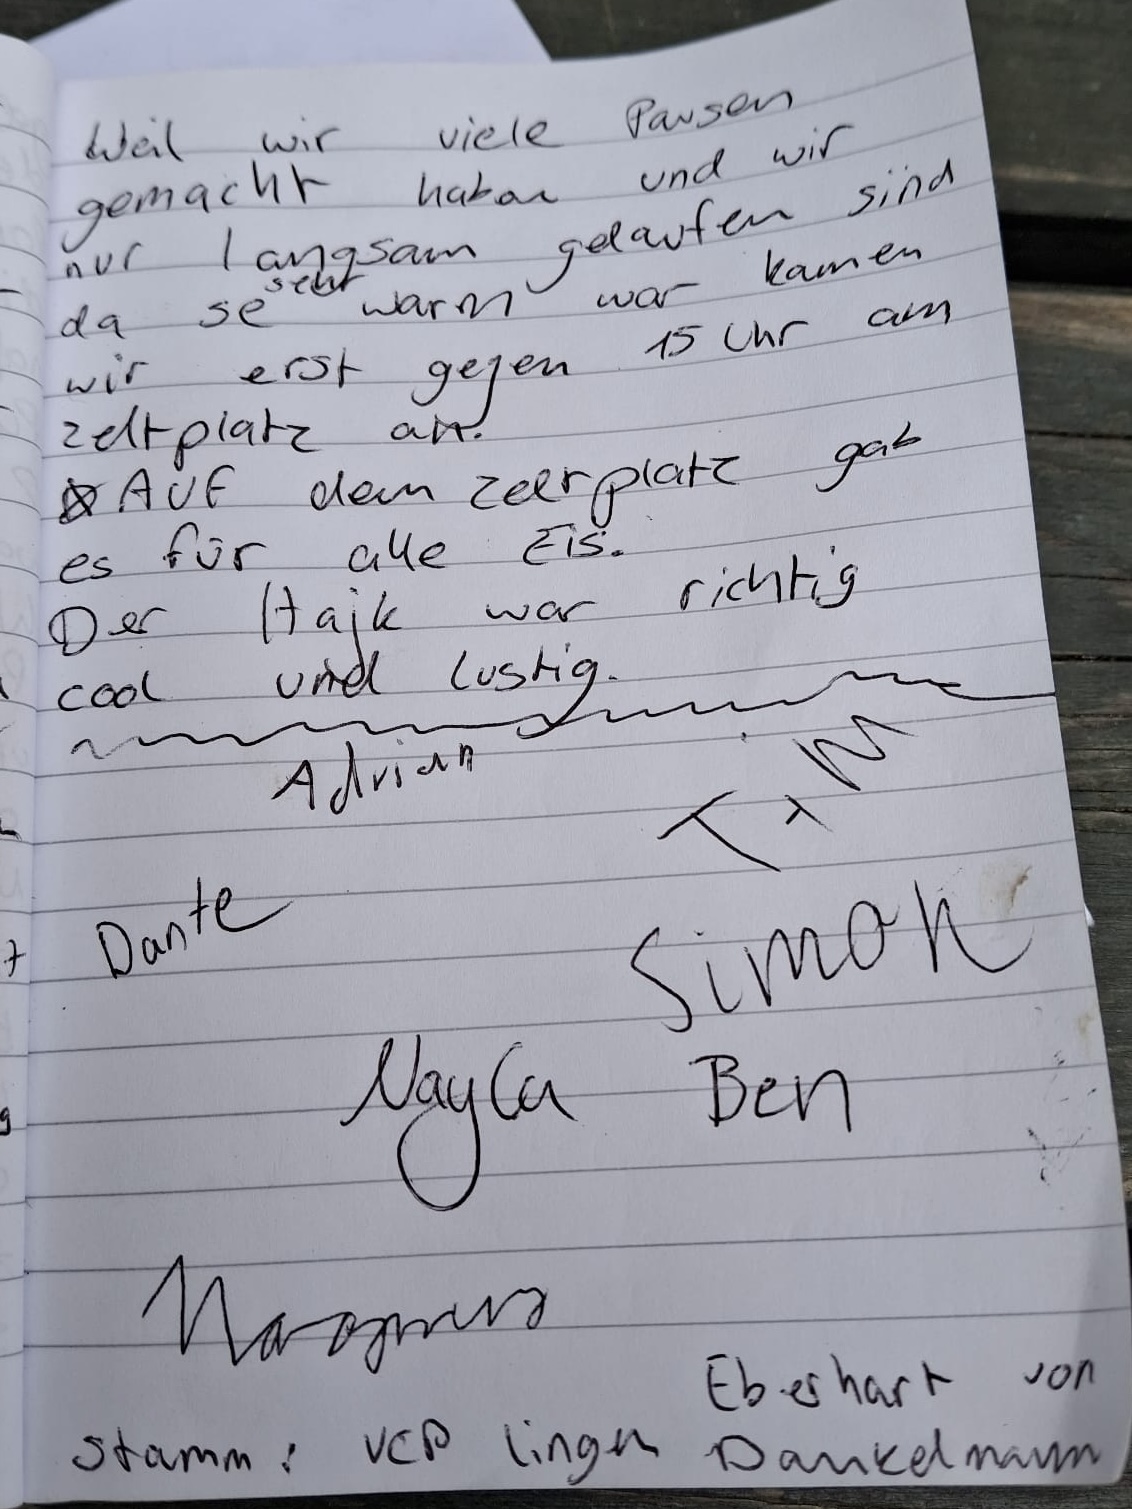 Weil wir viele Pausen
gemacht haben und wir
nur langsam gelaufen sind
da se sehr warm war kamen
wir erst gegen 15 Uhr am
zeltplatz an.
AUF dem zeltplatz gab
es für alle Eis.
Der Hajk war richtig
cool und lustig.
Adrian
Tim
Dante
Simon
Nayla Ben
Magnus
Stamm: VCP lingen Eberhart von
Dankelmann